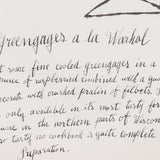 Greengages a la Warhol
t some fine cooled greengages in a
erence of raspberries combined with a qua
ecorate with crushed pralin of filberts.
only available in its most tasty for
une in the northern parts of Wiscons
so tasty no cookbook is quite complete
Preparation.